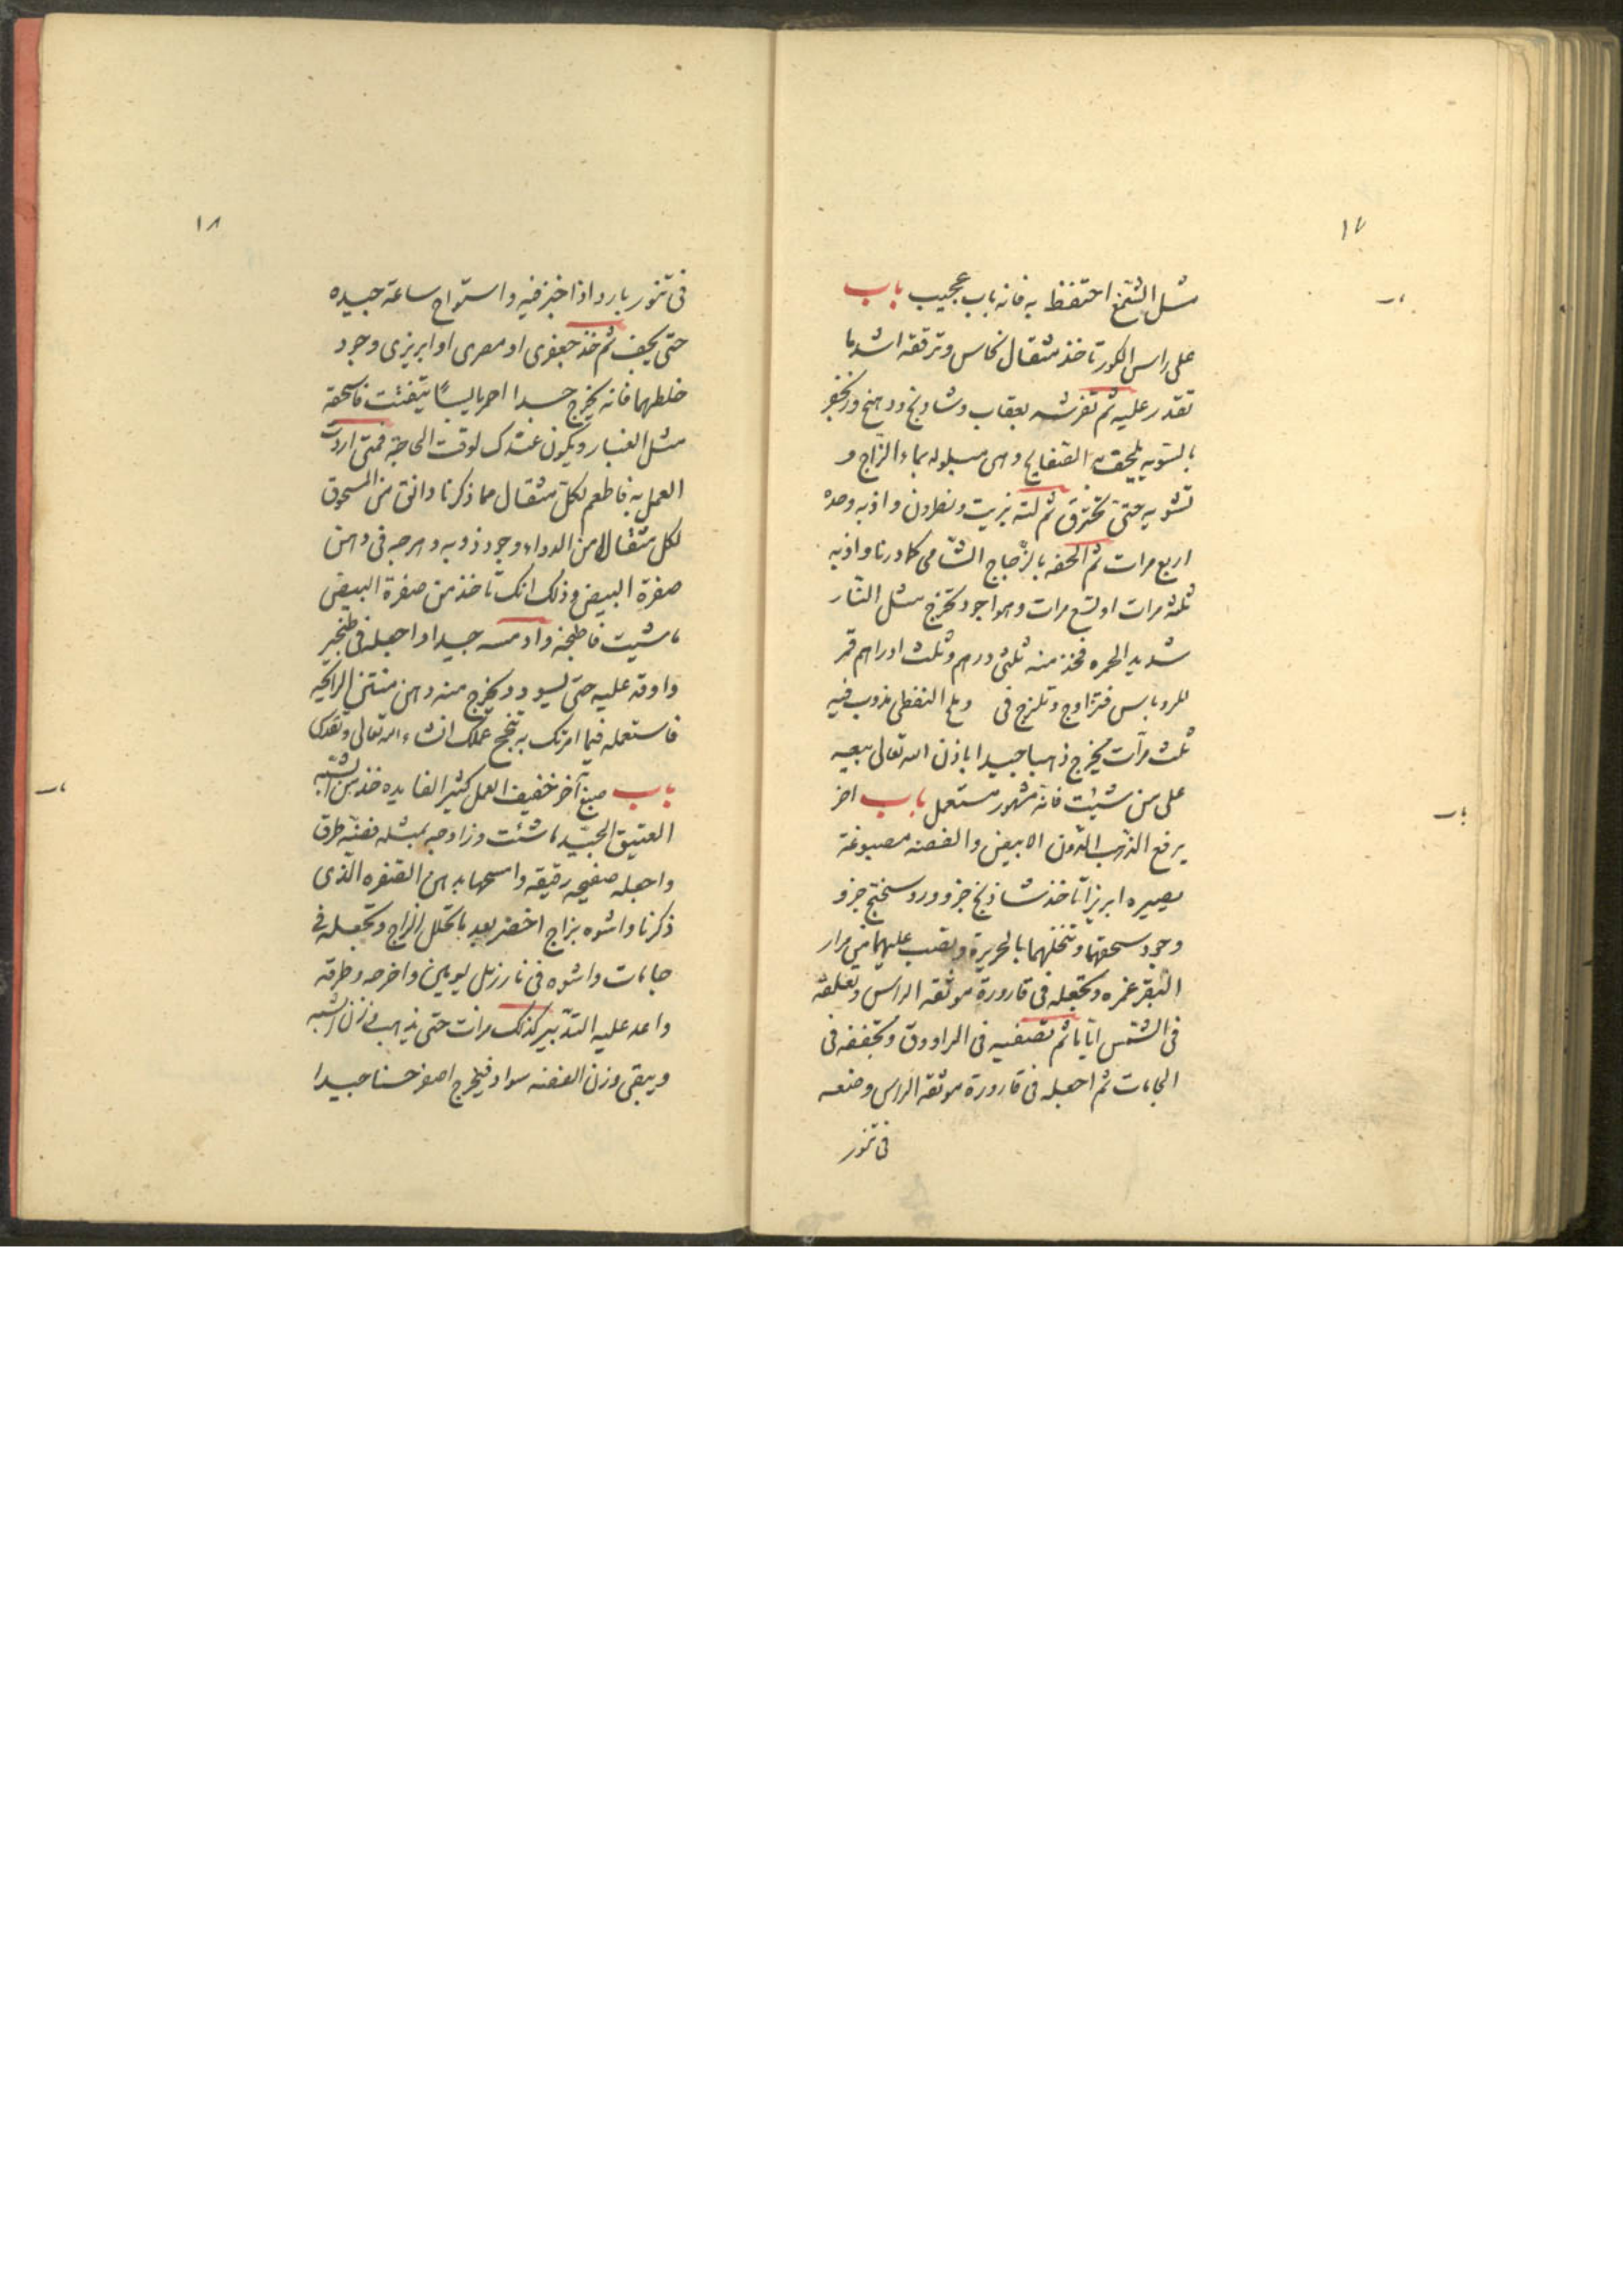 ١٧
مثل الشمع احتفظ به فانه باب عجيب باب
على راس الكور تاخذ مثقال نحاس وترققه اشد ما
تقدر عليه ثم تفرشه بعقاب وشادنج وروسختج وزنجفر
بالسويه يلحف به الصفايح وهى مبلوله بماء الزاج و
تشويه حتى تحترق ثم لته بزيت ونطرون واذبه وحده
اربع مرات ثم الحفه بالزجاج الشامى كا درنا واذبه
ثلثة مرات او تسع مرات وهو اجود تخرج مثل النار
شديد الحمره فخذ منه ثلثى درهم وثلث ادراهم قمر
للروباس فتزاوج وتلزج فى وملح النفطى يذوب فيه
ثلث مرات يخرج ذهبا جيدا باذن الله تعالى بيعه
على من شيئت فانه مشهور مستعمل باب اخر
يرفع الذهب الدون الابيض والفضه مصبوغة
يصيره ابريزا تاخذ شاذنج جزو وروسختج جزو
وجود سحقهما وتنخلهما بالحريرة وتصب عليهما من مرار
البقر غمره وتجعله فى قارورة موثقه الراس وتعلقه
فى الشمس اياما ثم تصفيه فى الراووق وتجففه فى
الجامات ثم اجعله فى قارورة موثقه الراس وضعه
فى تنور
باب
باب
١٨
فى تنور بارد اذا خبز فيه واستواح ساعة جيده
حتى يجف ثم خذ جعفرى او مصرى او ابريزى وجود
خلطهما فانه يخرج جسدا احر يابسًا يتفتت فاسحقه
مثل الغبار ويكون عندك لوقت الحاجة فمتى اردت
العمل به فاطعم لكل مثقال مما ذكرنا دانق من المسحوق
لكل مثقال من الدواء وجود ذوبه واخرجه فى دهن
صفرة البيض وذلك انك تاخذ من صفرة البيض
ما شيت فاطبخه وادمسه جيدا واجعله فى طنجير
واوقد عليه حتى يسود ويخرج منه دهن منتن الرايحه
فاستعمله فيما امرتك به تنجح عملك انشاء الله تعالى وتقدس
باب صبغ آخر خفيف العمل كثير الفايده خذ من الشبه
العتيق الجيد ما شئت وزاوجه بمثله فضه طرق
واجعله صفيحه رقيقه وامسحها بدهن الصفره الذى
ذكرنا واشوه بزاج اخضر بعد ما تحلل الزاج وتجعله فى
جامات واشوه فى نار زبل يومين واخرجه وطرقه
واعد عليه التدبير كذلك مرات حتى يذهب وزن الشبه
ويبقى وزن الفضه سواد فيخرج اصفر حسنا جيدا
باب